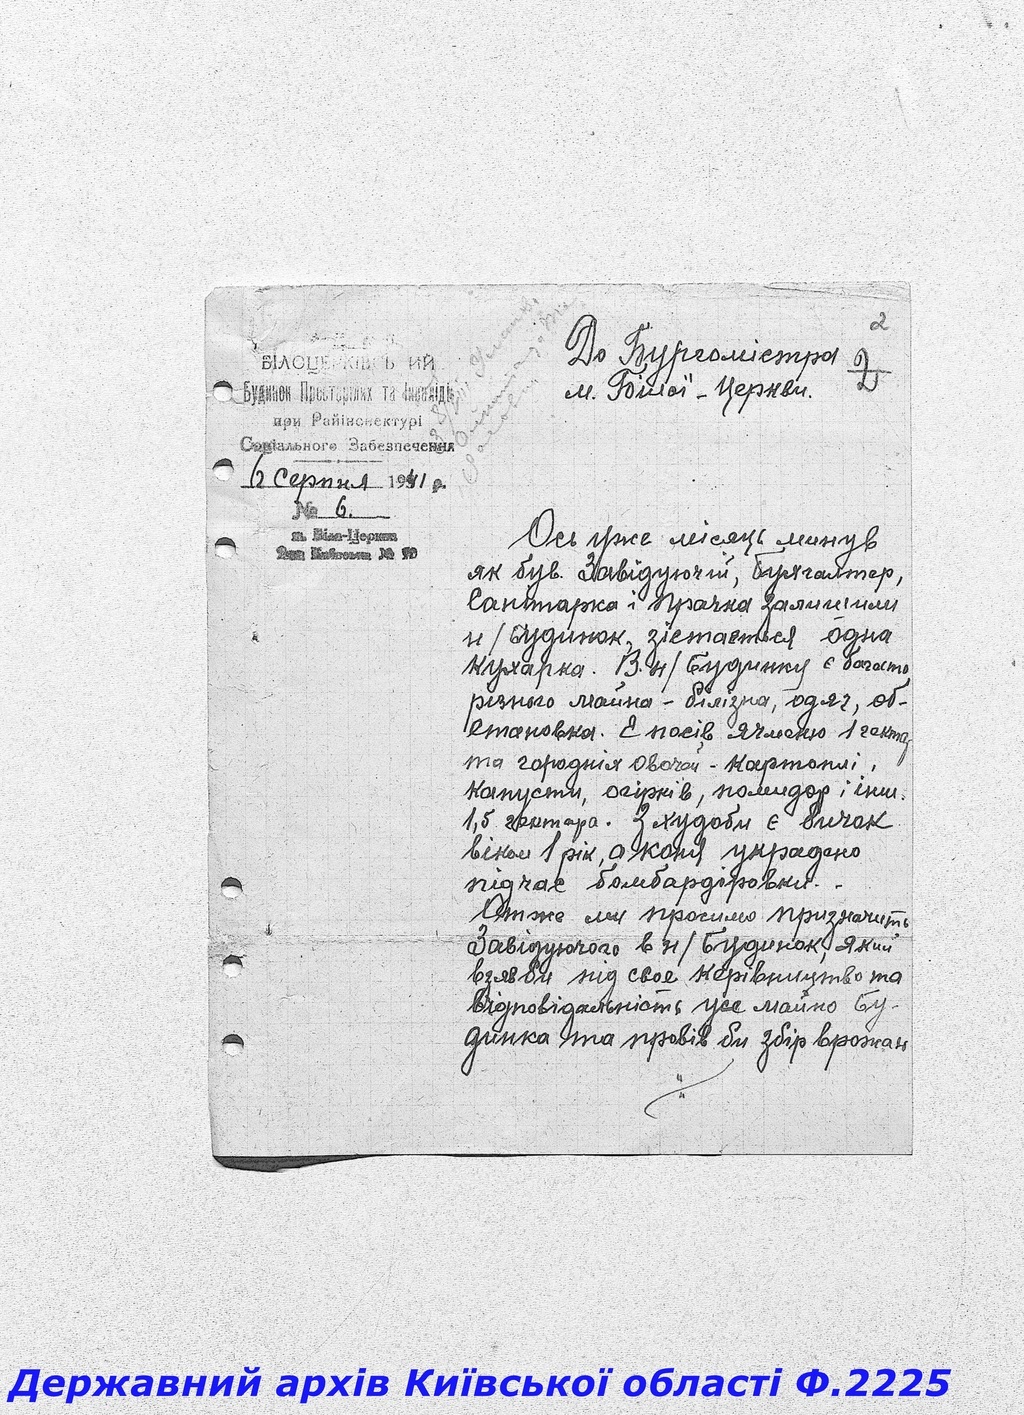 2
До Бургомістра
м. Білої - Церкви.
2
БІЛОЦЕРКІВСЬКИЙ
Будинок Престарілих та Інвалідів
при Райінспектурі
Соціального Забезпечення
6 Серпня 1941 р.
№ 6.
м. Біла-Церква
Ось уже місяць минув
як був. Завідуючий, Бухгалтер,
Санітарка і прачка залишили
н/Будинок, зістається одна
кухарка. В н/Будинку є багато
різного майна - білізна, одяг, об-
становка. Є посів ячменю 1 гектар
та городнія овочей - картоплі,
капусти, огірків, помидор і інш.
1,5 гектара. З худоби є бичок
віком 1 рік, а коня украдено
підчас бомбардіровки. -
Отже ми просимо призначить
Завідуючого в н/Будинок, який
взяв би під своє керівництво та
відповідальність усе майно Бу-
динка та провів би збір врожаю
Державний архів Київської області Ф.2225